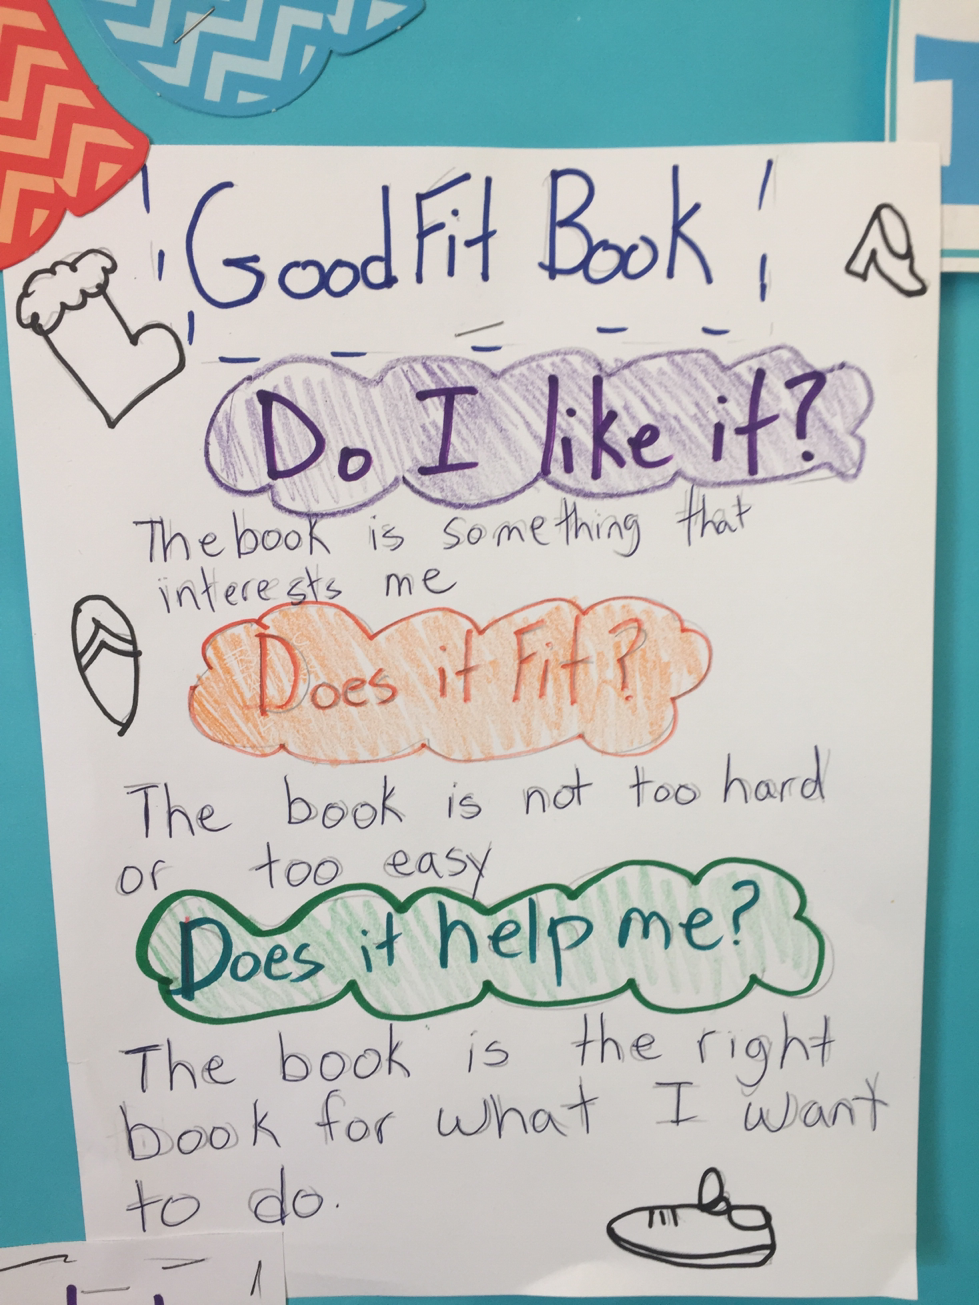 Good Fit Book
Do I like it?
The book is something that
interests me
Does it Fit?
The book is not too hard
or too easy
Does it help me?
The book is the right
book for what I want
to do.